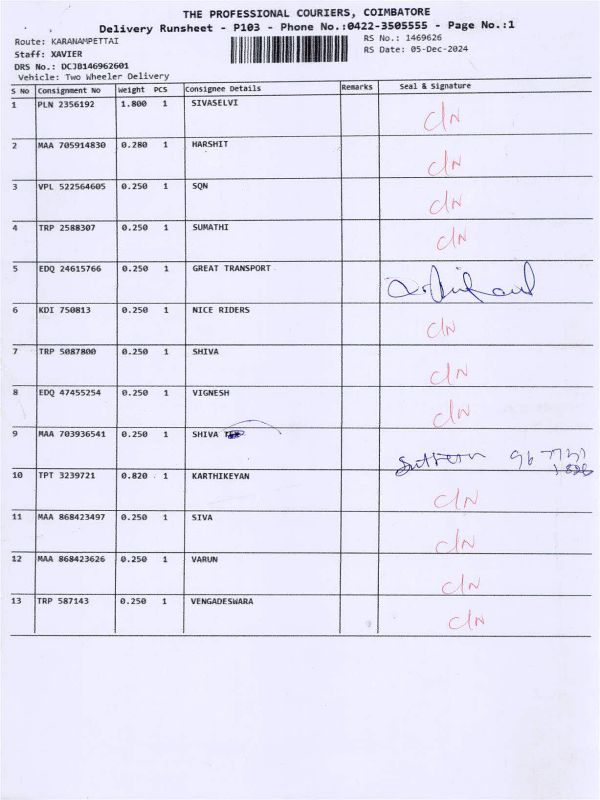 THE PROFESSIONAL COURIERS, COIMBATORE
Delivery Runsheet - P103 - Phone No.:0422-3505555 - Page No.:1
Route: KARANAMPETTAI RS No.: 1469626
Staff: XAVIER RS Date: 05-Dec-2024
DRS No.: DCJB146962601
Vehicle: Two Wheeler Delivery
S No Consignment No Weight PCS Consignee Details Remarks Seal & Signature
1 PLN 2356192 1.800 1 SIVASELVI C/N
2 MAA 705914830 0.280 1 HARSHIT C/N
3 VPL 522564605 0.250 1 SQN C/N
4 TRP 2588307 0.250 1 SUMATHI C/N
5 EDQ 24615766 0.250 1 GREAT TRANSPORT
6 KDI 750813 0.250 1 NICE RIDERS C/N
7 TRP 5087800 0.250 1 SHIVA C/N
8 EDQ 47455254 0.250 1 VIGNESH C/N
9 MAA 703936541 0.250 1 SHIVA
10 TPT 3239721 0.820 1 KARTHIKEYAN C/N
11 MAA 868423497 0.250 1 SIVA C/N
12 MAA 868423626 0.250 1 VARUN C/N
13 TRP 587143 0.250 1 VENGADESWARA C/N